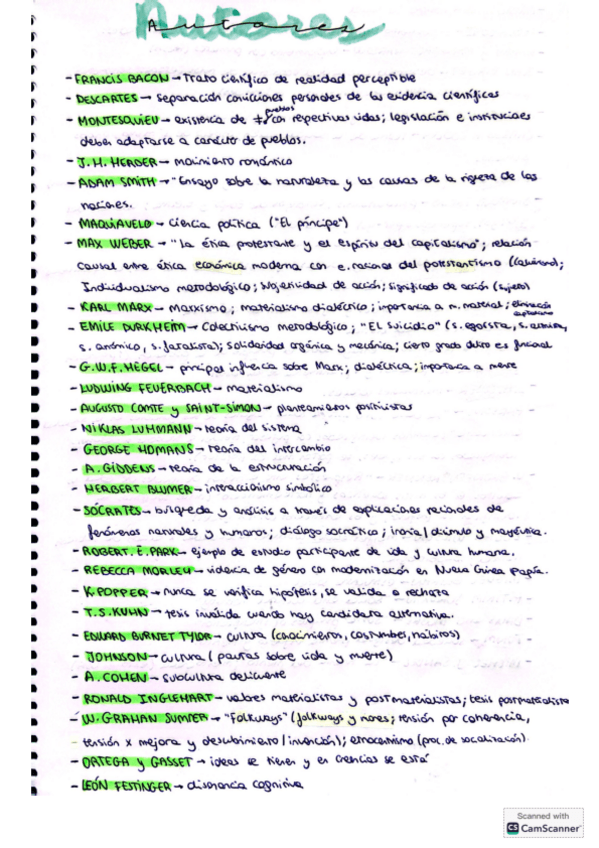 Autores
- FRANCIS BACON → Trato científico de realidad perceptible
- DESCARTES → separación condiciones personales de las evidencia científicas
pueblos
- MONTESQUIEU → existencia de ≠s con respectivas vidas; legislación e instituciones
deben adaptarse a carácter de pueblos.
- J.H. HERDER → movimiento romántico
- ADAM SMITH → "Ensayo sobre la naturaleza y las causas de la riqueza de las
naciones.
- MAQUIAVELO → ciencia política ("El príncipe")
- MAX WEBER → "La ética protestante y el espíritu del capitalismo"; relación
causal entre ética económica moderna con e. racional del protestantismo (calvinismo);
Individualismo metodológico; subjetividad de acción; significado de acción (sujeto)
- KARL MARX → Marxismo; materialismo dialéctico; importancia a m. material; eliminación
capitalismo
- EMILE DURKHEIM → Colectivismo metodológico; "EL Suicidio" (s. egoísta, s. altruista,
s. anómico, s. fatalista); solidaridad orgánica y mecánica; cierto grado delito es funcional
- G.W.F. HEGEL → principal influencia sobre Marx; dialéctica; importancia a mente
- LUDWING FEUERBACH → materialismo
- AUGUSTO COMTE y SAINT-SIMON → planteamientos positivistas
- NIKLAS LUHMANN → teoría del sistema
- GEORGE HOMANS → teoría del intercambio
- A. GIDDENS → teoría de la estructuración
- HERBERT BLUMER → interaccionismo simbólico
- SÓCRATES → búsqueda y análisis a través de explicaciones racionales de
fenómenos naturales y humanos; diálogo socrático; ironía/disimulo y mayéutica.
- ROBERT. E. PARK → ejemplo de estudio participante de vida y cultura humana.
- REBECCA MORLEY → violencia de género con modernización en Nueva Guinea Papúa.
- K. POPPER → nunca se verifica hipótesis, se valida o rechaza
- T.S. KUHN → tesis invalida cuando hay candidata alternativa.
- EDWARD BURNET TYLOR → cultura (conocimientos, costumbres, hábitos)
- JOHNSON → cultura (pautas sobre vida y muerte)
- A. COHEN → subcultura delicuente
- RONALD INGLEHART → valores materialistas y postmaterialistas; tesis postmaterialista
- W. GRAHAN SUMNER → "Folkways" (folkways y mores; tensión por coherencia,
tensión x mejora y descubrimiento/invención); etnocentrismo (proc. de socialización).
- ORTEGA Y GASSET → ideas se tienen y en creencias se está
- LEÓN FESTINGER → disonancia cognitiva
Scanned with
CS CamScanner